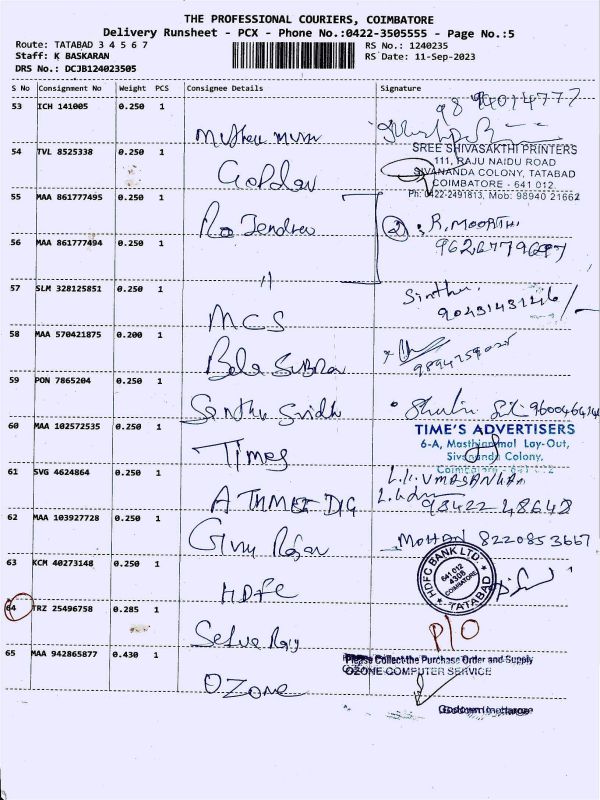 THE PROFESSIONAL COURIERS, COIMBATORE
Delivery Runsheet - PCX - Phone No.:0422-3505555 - Page No.:5
Route: TATABAD 3 4 5 6 7
RS No.: 1240235
Staff: K BASKARAN
RS Date: 11-Sep-2023
DRS No.: DCJB124023505
S No Consignment No Weight PCS Consignee Details Signature
53 ICH 141005 0.250 1
54 TVL 8525338 0.250 1
SREE SHIVASAKTHI PRINTERS
111, RAJU NAIDU ROAD
SIVANANDA COLONY, TATABAD
COIMBATORE - 641 012.
Ph: 0422-2491813, Mob: 98940 21662
55 MAA 861777495 0.250 1
2 R. MOORTHI
56 MAA 861777494 0.250 1
57 SLM 328125851 0.250 1
MCS
58 MAA 570421875 0.200 1
Bala Subra
59 PON 7865204 0.250 1
60 MAA 102572535 0.250 1
Times
TIME'S ADVERTISERS
6-A, Masthiammal Lay-Out,
Sivananda Colony,
Coimbatore - 641 012
61 SVG 4624864 0.250 1
98422 48648
62 MAA 103927728 0.250 1
MOHAN 8220853667
63 KCM 40273148 0.250 1
HDFC
HDFC BANK LTD.
641 012
4308
COIMBATORE
TATABAD
64 TRZ 25496758 0.285 1
Selva Raj
P/O
65 MAA 942865877 0.430 1
OZone
Please Collect the Purchase Order and Supply
OZONE COMPUTER SERVICE
Godown Incharge